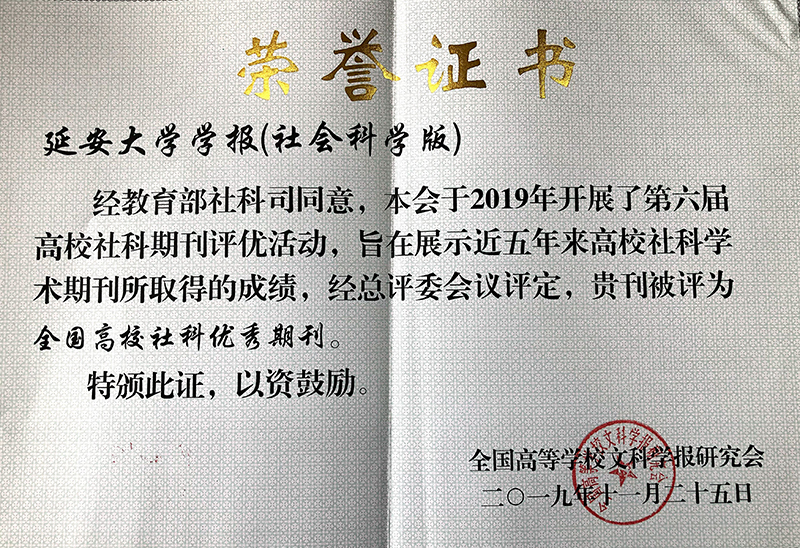 荣誉证书
延安大学学报(社会科学版)
经教育部社科司同意，本会于2019年开展了第六届
高校社科期刊评优活动，旨在展示近五年来高校社科学
术期刊所取得的成绩，经总评委会议评定，贵刊被评为
全国高校社科优秀期刊。
特颁此证，以资鼓励。
全国高等学校文科学报研究会
二〇一九年十一月二十五日